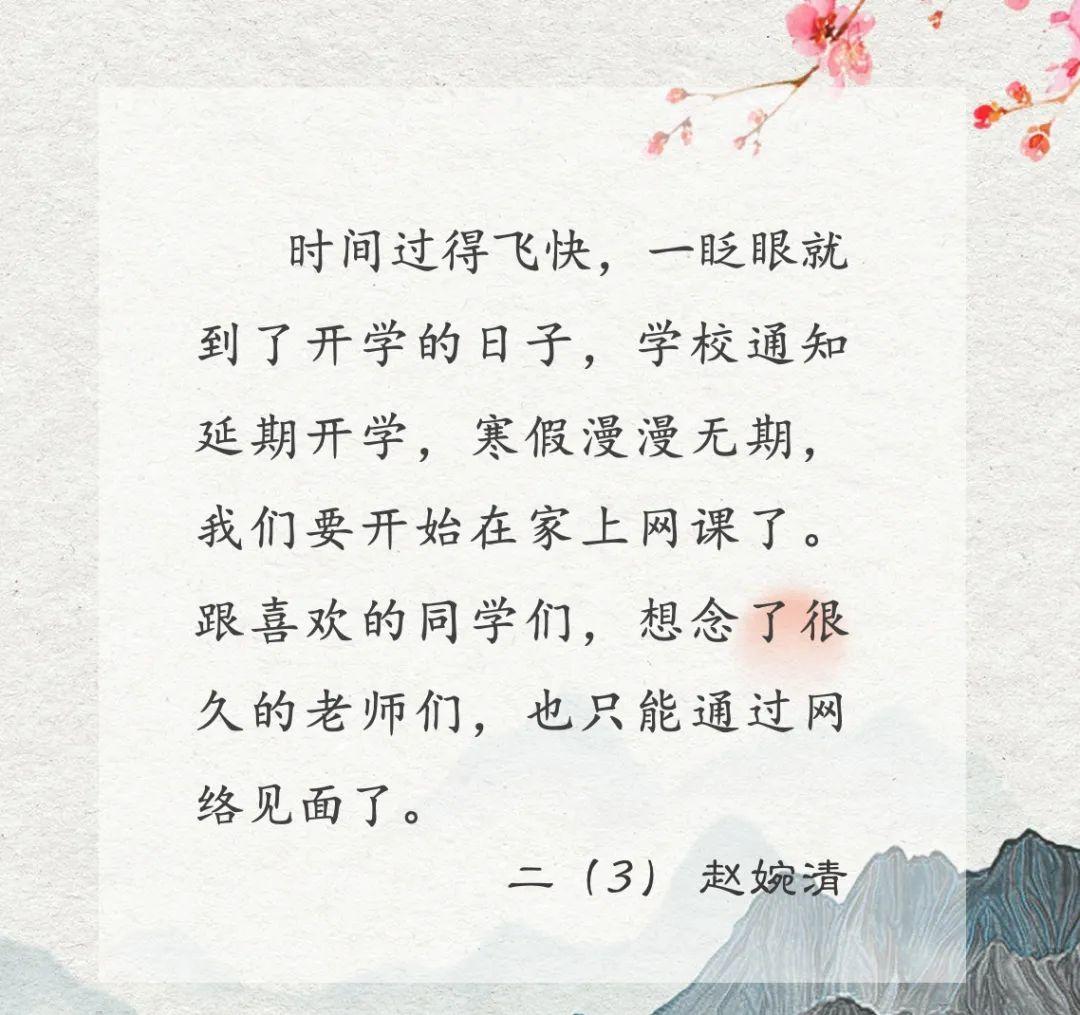 时间过得飞快，一眨眼就
到了开学的日子，学校通知
延期开学，寒假漫漫无期，
我们要开始在家上网课了。
跟喜欢的同学们，想念了很
久的老师们，也只能通过网
络见面了。
二（3） 赵婉清